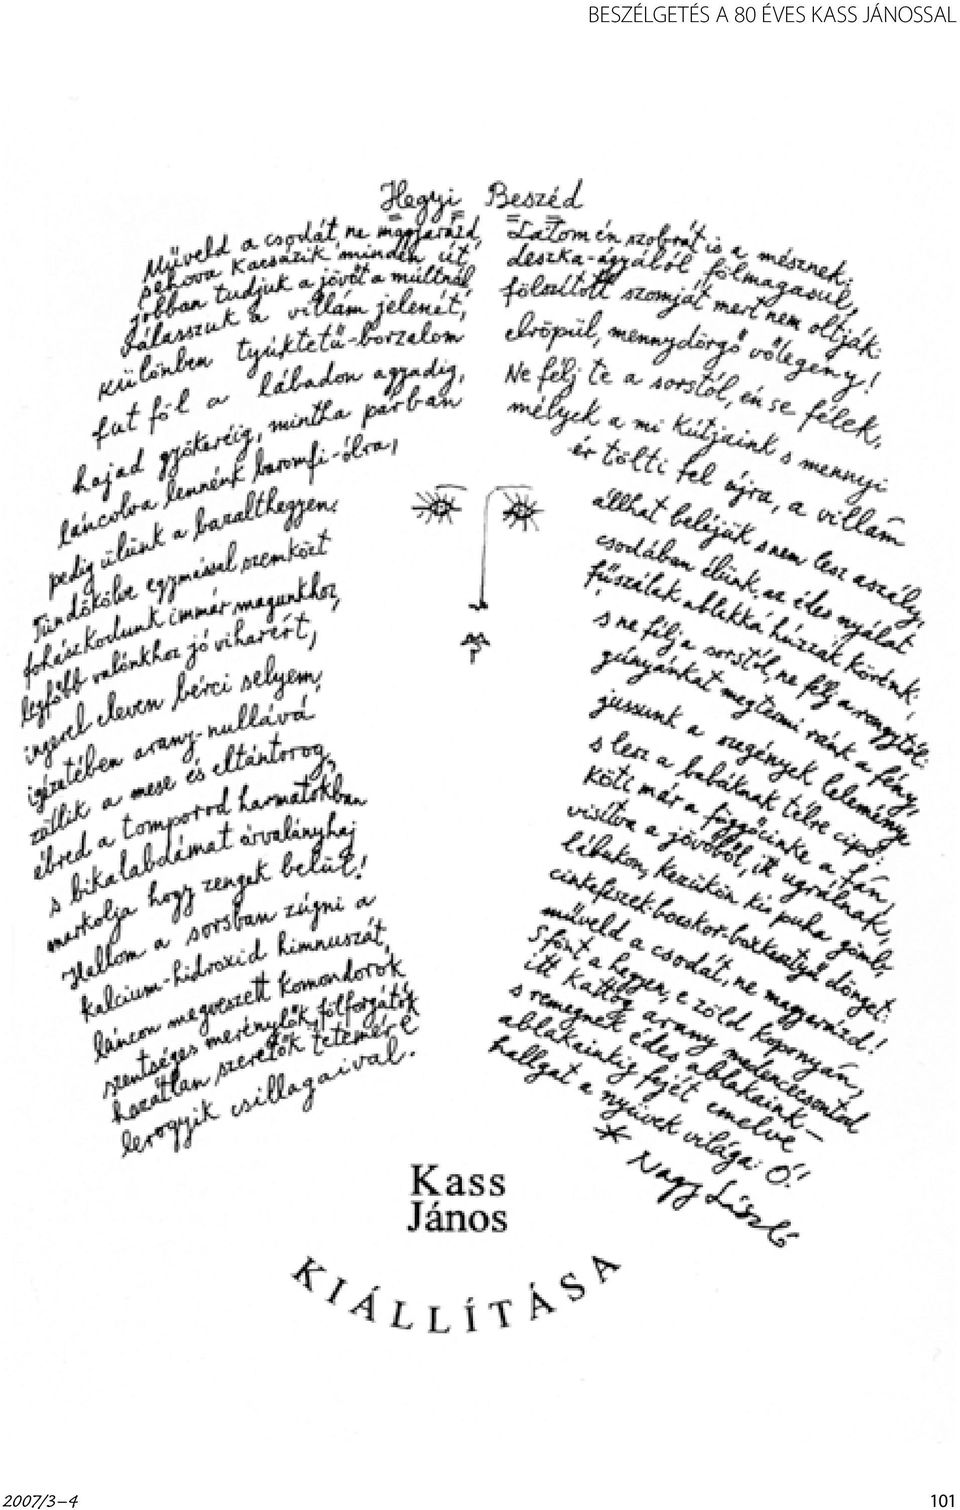 BESZÉLGETÉS A 80 ÉVES KASS JÁNOSSAL
Hegyi Beszéd
Műveld a csodát, ne magyarázd,
sehova kacsázik minden út,
jobban tudjuk a jövőt a múltnál,
válasszuk a villám jelenét,
különben tyúktetű-borzalom
fut föl a lábadon agyadig,
hajad gyökeréig, mintha párban
láncolva lennénk baromfi-ólra,
pedig ülünk a bazalthegyen.
Tündökölve egymással szemközt
fohászkodunk immár magunkhoz,
legfőbb valónkhoz jó viharért,
ingerel eleven bérci selyem,
igézetében arany-nullává
zöllik a mese és eltántorog,
ébred a tomporod harmatokban
s bikalabdámat árvalányhaj
markolja hogy zengek belül!
Hallom a sorsban zúgni a
kalcium-hidroxid himnuszát,
láncon megveszett komondorok
szentséges merénylők, fölforgatók
hazátlan szeretők tetemére
lerogyik csillagaival.
Látom én szobrát is a mésznek:
deszka-ágyából fölmagasul,
fölszított szomját mert nem oltják:
elröpül, mennydörgő vőlegény!
Ne félj te a sorstól, én se félek,
mélyek a mi kútjaink s mennyi
ér tölti fel újra, a villám
állhat beléjük s nem lesz aszály,
csodában élünk, az édes nyálat
fűszálak ablakká húzzák körénk:
s ne félj a sorstól, ne félj a rongytól:
gúnyánkat megtermi ránk a fény,
jussunk a szegények leleménye
s lesz a babáknak télre cipő:
köti már a függőcinke a fán,
visítva a jövőből, itt ugrálnak,
lábukon, kezükön kis puha gömb,
cinkefészek-bocskor-boxkesztyű dönget:
műveld a csodát, ne magyarázd!
S fönt a hegyen, e zöld kopornyán,
itt kattog arany medencecsontod
s remegnek édes ablakaink –
ablakainkig fejét emelve
hallgat a nyüvek világa: Ó!
* Nagy László
Kass
János
KIÁLLÍTÁSA
2007/3–4
101